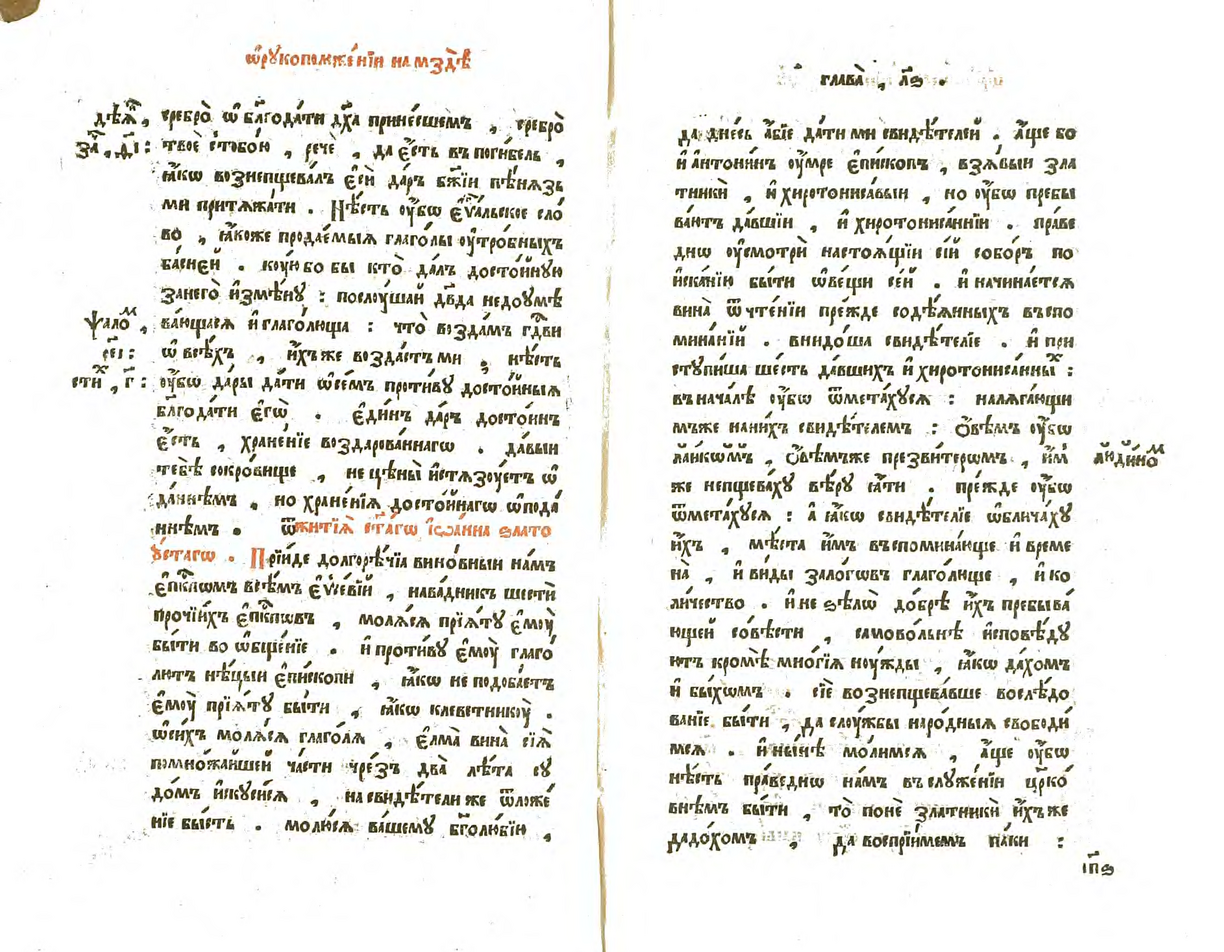 ѡ҆рꙋкоположе́нїи на мздѣ̀
дѣѧ҃,
за҃, д҃і:
сребро̀ ѿ бл҃года́ти дх҃а прине́сшемъ , сребро̀
твоѐ стобо́ю , рече̏ , да є҆́сть въ погибель ,
ꙗ҆́кѡ вознепщева́лъ є҆сѝ да́ръ бж҃їи пѣ́нѧзь
ми притѧжа́ти . Нѣ́сть ᲂу҆́бѡ є҆ѵⷢ҇альское сло́
во , ꙗ҆́коже продае́мыѧ глаго́лы ᲂу҆тро́бныхъ
ба́снєй . кᲂу́ю бо бы кто̀ да́лъ досто́йнᲂую
занего̀ и҆змѣ́нꙋ : послᲂу́шай дв҃да недоꙋмѣ
ва́ющасѧ и҆ глаго́люща : что̀ возда́мъ гдⷭ҇ви
ѱало́ⷨ ,
р҃еі :
сти́ⷯ , г҃ :
ѿ всѣ́хъ , и҆́хъже возда́стъ ми , нѣ́сть
ᲂу҆́бѡ да́ры да́ти ѡ҆се́мъ проти́вꙋ досто́йныѧ
бл҃года́ти є҆гѡ̀ . є҆ди́нъ да́ръ досто́инъ
є҆́сть , хране́нїе воздарова́ннагѡ . да́выи
тебѣ̀ сокро́вище , не цѣны̀ и҆стѧзᲂу́етъ ѡ҆
да́ннѣмъ , но хране́нїѧ досто́йнагѡ ѡ҆пода́
ннѣмъ . ѿ житїѧ̀ ст҃а́гѡ і҆ѡа́нна ѕлато
ᲂу́стагѡ . Прїи́де долгорѣ́чїа вино́вныи на́мъ
є҆пⷭ҇кпѡмъ всѣ́мъ є҆ѵсе́вїй , нава́дникъ шестѝ
про́чїихъ є҆пⷭ҇кпѡвъ , молѧ́сѧ прїѧ́тꙋ є҆мᲂу̀
бы́ти во ѡ҆бще́нїе . и҆ проти́вꙋ є҆мᲂу̀ глаго́
лютъ нѣ́цыи є҆пи́скопи , ꙗ҆́кѡ не подоба́етъ
є҆мᲂу̀ прїѧ́тꙋ бы́ти , ꙗ҆́кѡ клеветникᲂу̀ .
ѡ҆си́хъ молѧ́сѧ глаго́лѧ , є҆лма̀ вина̀ сїѧ̀
помно́жайшей ча́сти чре́зъ два̀ лѣ́та сꙋ
до́мъ и҆скуси́сѧ , на свидѣ́тели же ѿложе́
нїе бы́сть . молю́сѧ ва́шемꙋ бг҃олю́бїю ,
глава̀ , л҃ѕ .
да дне́сь а҆́бїе да́ти ми свидѣ́телей . а҆́ще бо
и҆ а҆нтони́нъ ᲂу҆́мре є҆пи́скопъ , взѧ́выи зла
тникѝ , и҆ хиротониса́выи , но ᲂу҆́бѡ пребы
ва́ютъ да́вшїи , и҆ хиротониса́ннїи . пра́ве
днѡ ᲂу҆смотрѝ настоѧ́щїи сїй собо́ръ по
и҆ска́нїю бы́ти ѡ҆ ве́щи се́й . и҆ начина́етсѧ
вина̀ ѿ чте́нїи пре́жде содѣ́ѧнныхъ въспо
мина́нїй . внидо́ша свидѣ́телїе . и҆ при
стꙋпи́ша ше́сть да́вшихъ и҆ хиротониса́нныⷯ :
въ нача́лѣ ᲂу҆́бѡ ѿмета́хꙋсѧ : налѧга́ющи
мъже на ни́хъ свидѣ́телемъ : ѻ҆вѣ́мъ ᲂу҆́бѡ
лаикѡ́мъ , ѻ҆вѣ́мъже презви́терѡмъ , и҆́м̾
же непщева́хꙋ вѣ́рꙋ ꙗ҆́ти . пре́жде ᲂу҆́бѡ
ѿмета́хꙋсѧ : а҆ ꙗ҆́кѡ свидѣ́телїе ѡ҆блича́хꙋ
и҆́хъ , мѣ́ста и҆́мъ въспомина́юще и҆ време
на̀ , и҆ ви́ды зало́гѡвъ глаго́люще , и҆ ко
ли́чество . и҆ не ѕѣлѡ̀ до́брѣ и҆́хъ пребыва́
ющей со́вѣсти , самово́льнѣ и҆сповѣ́дꙋ
ютъ кромѣ̀ мно́гїѧ нᲂу́жды , ꙗ҆́кѡ да́хомъ
и҆ бы́хѡмъ . сїѐ вознепщева́вше вослѣ́до
ванїе бы́ти , да слᲂу́жбы наро́дныѧ свободи́
мсѧ . и҆ ны́нѣ мо́лимсѧ , а҆́ще ᲂу҆́бѡ
нѣ́сть пра́веднѡ на́мъ въ слꙋже́нїи цр҃ко́
внѣмъ бы́ти , то̀ понѐ златникѝ и҆́хъже
дадо́хомъ , да воспрїи́мемъ па́ки :
іп҃ѕ